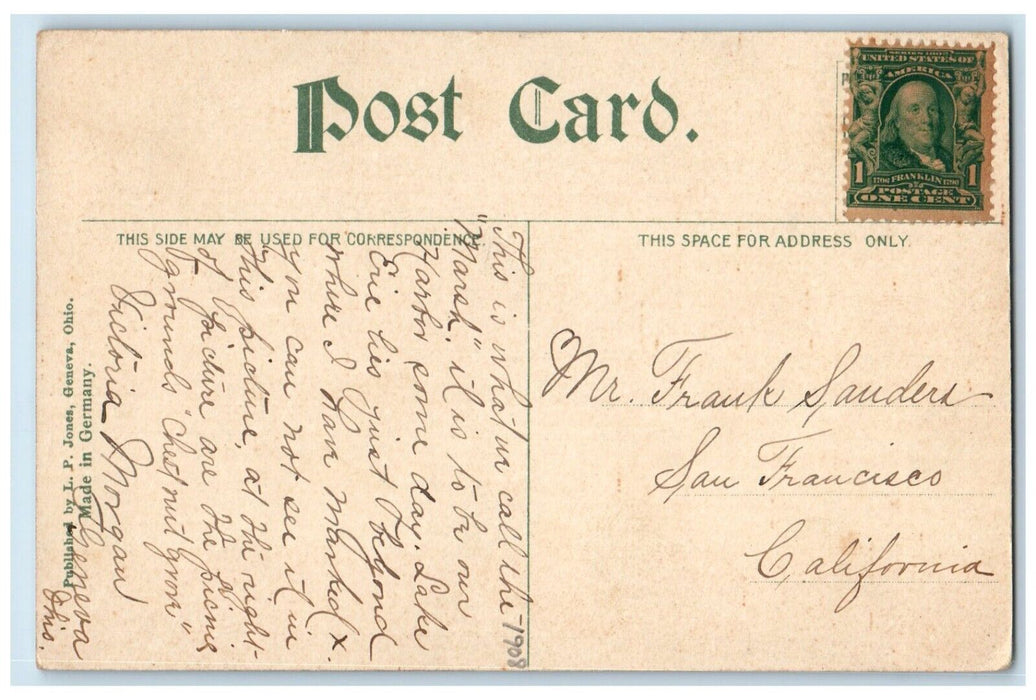 Post Card.
SERIES 1902
UNITED STATES OF
AMERICA
1 1706 FRANKLIN 1790 1
POSTAGE
ONE CENT
THIS SIDE MAY BE USED FOR CORRESPONDENCE.
THIS SPACE FOR ADDRESS ONLY.
This is what we call the
"Marsh", it is to be our
Harbor some day. Lake
Erie lies just beyond
where I have marked x.
you can not see it in
this picture, at the right-
of picture are the picnic
grounds "Chestnut grove"
Victoria Morgan
Geneva
Ohio.
-1908
Mr. Frank Sanders
San Francisco
California
Published by L. P. Jones, Geneva, Ohio.
Made in Germany.